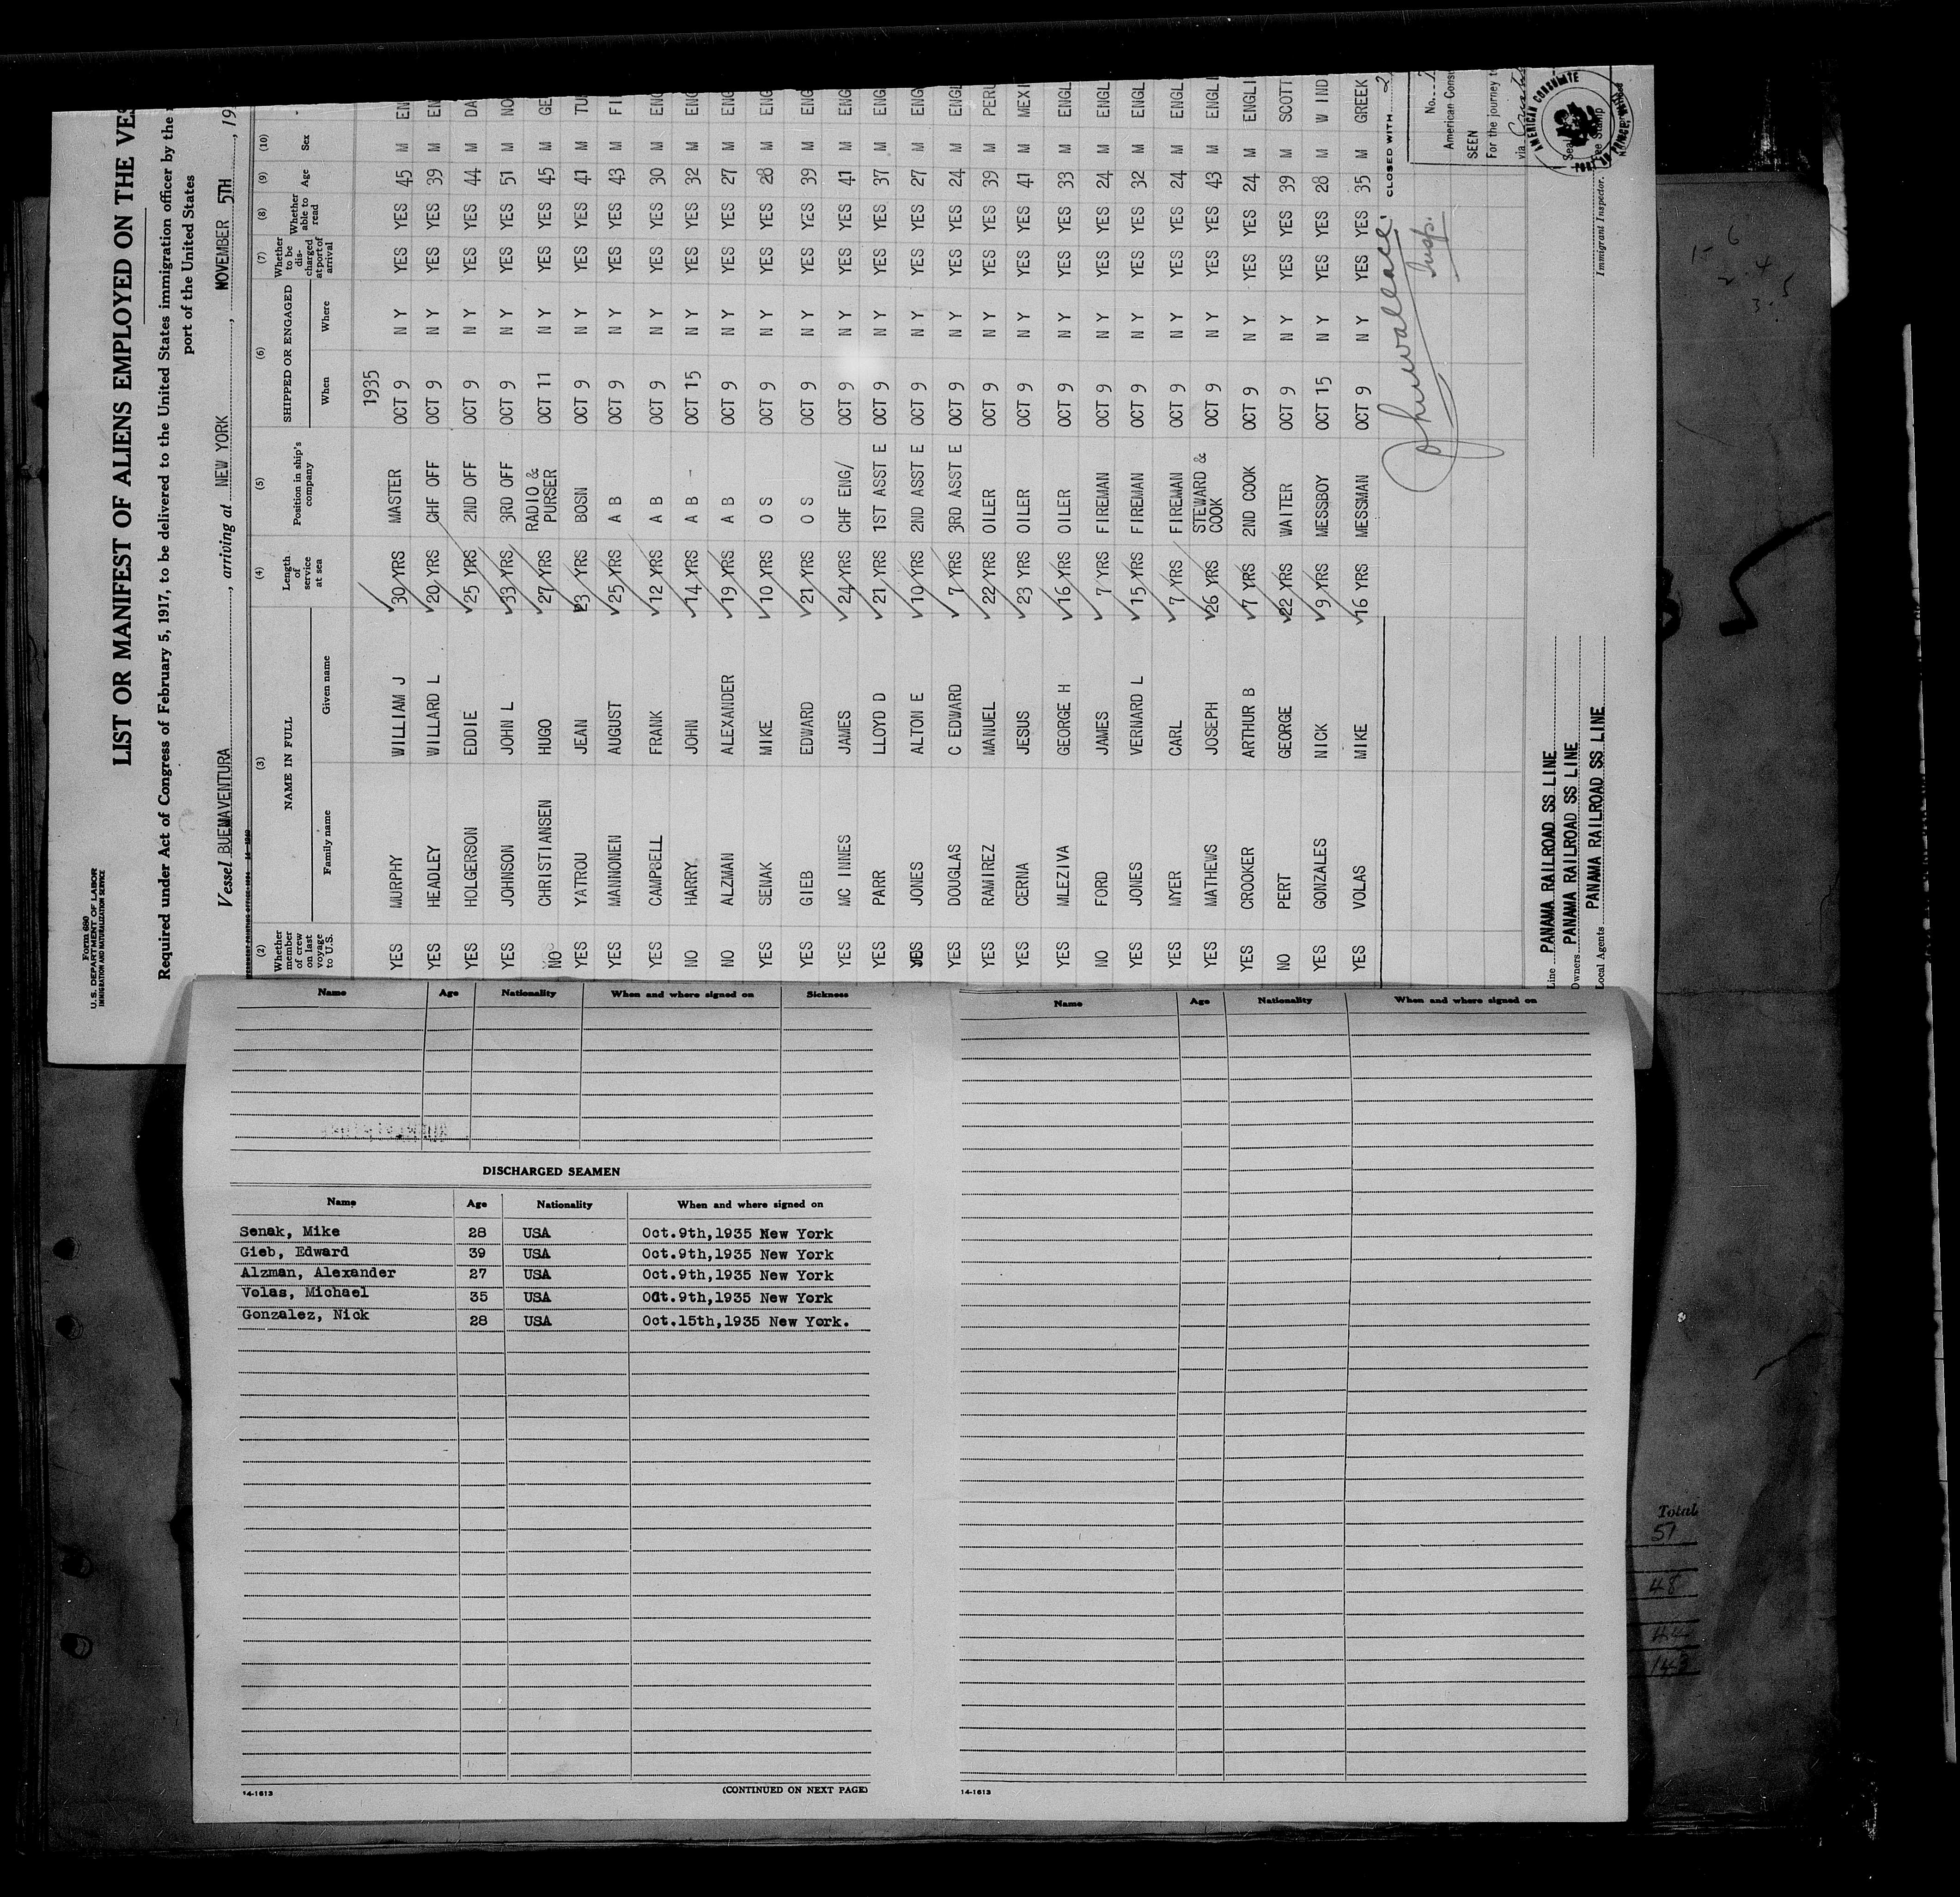 Form 680
U.S. DEPARTMENT OF LABOR
IMMIGRATION AND NATURALIZATION SERVICE
LIST OR MANIFEST OF ALIENS EMPLOYED ON THE VES
Required under Act of Congress of February 5, 1917, to be delivered to the United States immigration officer by the
port of the United States
Vessel BUENAVENTURA, arriving at NEW YORK, NOVEMBER 5TH, 19
(2) (3) (4) (5) (6) (7) (8) (9) (10)
Whether member of crew on last voyage to U.S. NAME IN FULL Family name Given name Length of service at sea Position in ship's company SHIPPED OR ENGAGED When Where Whether to be discharged at port of arrival Whether able to read Age Sex
1935
YES MURPHY WILLIAM J 30 YRS MASTER OCT 9 N Y YES YES 45 M EN
YES HEADLEY WILLARD L 20 YRS CHF OFF OCT 9 N Y YES YES 39 M EN
YES HOLGERSON EDDIE 25 YRS 2ND OFF OCT 9 N Y YES YES 44 M DA
YES JOHNSON JOHN L 33 YRS 3RD OFF OCT 9 N Y YES YES 51 M NO
NO CHRISTIANSEN HUGO 27 YRS RADIO & PURSER OCT 11 N Y YES YES 45 M GE
YES YATROU JEAN 23 YRS BOSN OCT 9 N Y YES YES 41 M TU
YES MANNONEN AUGUST 25 YRS A B OCT 9 N Y YES YES 43 M FI
YES CAMPBELL FRANK 12 YRS A B OCT 9 N Y YES YES 30 M ENG
NO HARRY JOHN 14 YRS A B - OCT 15 N Y YES YES 32 M ENG
NO ALZMAN ALEXANDER 19 YRS A B OCT 9 N Y YES YES 27 M ENG
YES SENAK MIKE 10 YRS O S OCT 9 N Y YES YES 28 M ENG
YES GIEB EDWARD 21 YRS O S OCT 9 N Y YES YES 39 M ENG
YES MC INNES JAMES 24 YRS CHF ENG/ OCT 9 N Y YES YES 41 M ENG
YES PARR LLOYD D 21 YRS 1ST ASST E OCT 9 N Y YES YES 37 M ENG
JONES ALTON E 10 YRS 2ND ASST E OCT 9 N Y YES YES 27 M ENG
YES DOUGLAS C EDWARD 7 YRS 3RD ASST E OCT 9 N Y YES YES 24 M ENGL
YES RAMIREZ MANUEL 22 YRS OILER OCT 9 N Y YES YES 39 M PERU
YES CERNA JESUS 23 YRS OILER OCT 9 N Y YES YES 41 M MEXI
YES MLEZIVA GEORGE H 16 YRS OILER OCT 9 N Y YES YES 33 M ENGL
NO FORD JAMES 7 YRS FIREMAN OCT 9 N Y YES YES 24 M ENGL
YES JONES VERNARD L 15 YRS FIREMAN OCT 9 N Y YES YES 32 M ENGL
YES MYER CARL 7 YRS FIREMAN OCT 9 N Y YES YES 24 M ENGL
YES MATHEWS JOSEPH 26 YRS STEWARD & COOK OCT 9 N Y YES YES 43 M ENGLI
YES CROOKER ARTHUR B 7 YRS 2ND COOK OCT 9 N Y YES YES 24 M ENGLI
NO PERT GEORGE 22 YRS WAITER OCT 9 N Y YES YES 39 M SCOTT
YES GONZALES NICK 9 YRS MESSBOY OCT 15 N Y YES YES 28 M W IND
YES VOLAS MIKE 16 YRS MESSMAN OCT 9 N Y YES YES 35 M GREEK
CLOSED WITH
Insp.
No.
American Cons
SEEN
For the journey t
via
AMERICAN CONSULATE
Seal
Fee Stamp
Immigrant Inspector.
Line PANAMA RAILROAD SS LINE
Owners PANAMA RAILROAD SS LINE
Local Agents PANAMA RAILROAD SS LINE
Name Age Nationality When and where signed on Sickness
DISCHARGED SEAMEN
Name Age Nationality When and where signed on
Senak, Mike 28 USA Oct.9th,1935 New York
Gieb, Edward 39 USA Oct.9th,1935 New York
Alzman, Alexander 27 USA Oct.9th,1935 New York
Volas, Michael 35 USA Oct.9th,1935 New York
Gonzalez, Nick 28 USA Oct.15th,1935 New York.
14-1613 (CONTINUED ON NEXT PAGE)
Name Age Nationality When and where signed on
14-1613
Total
51
48